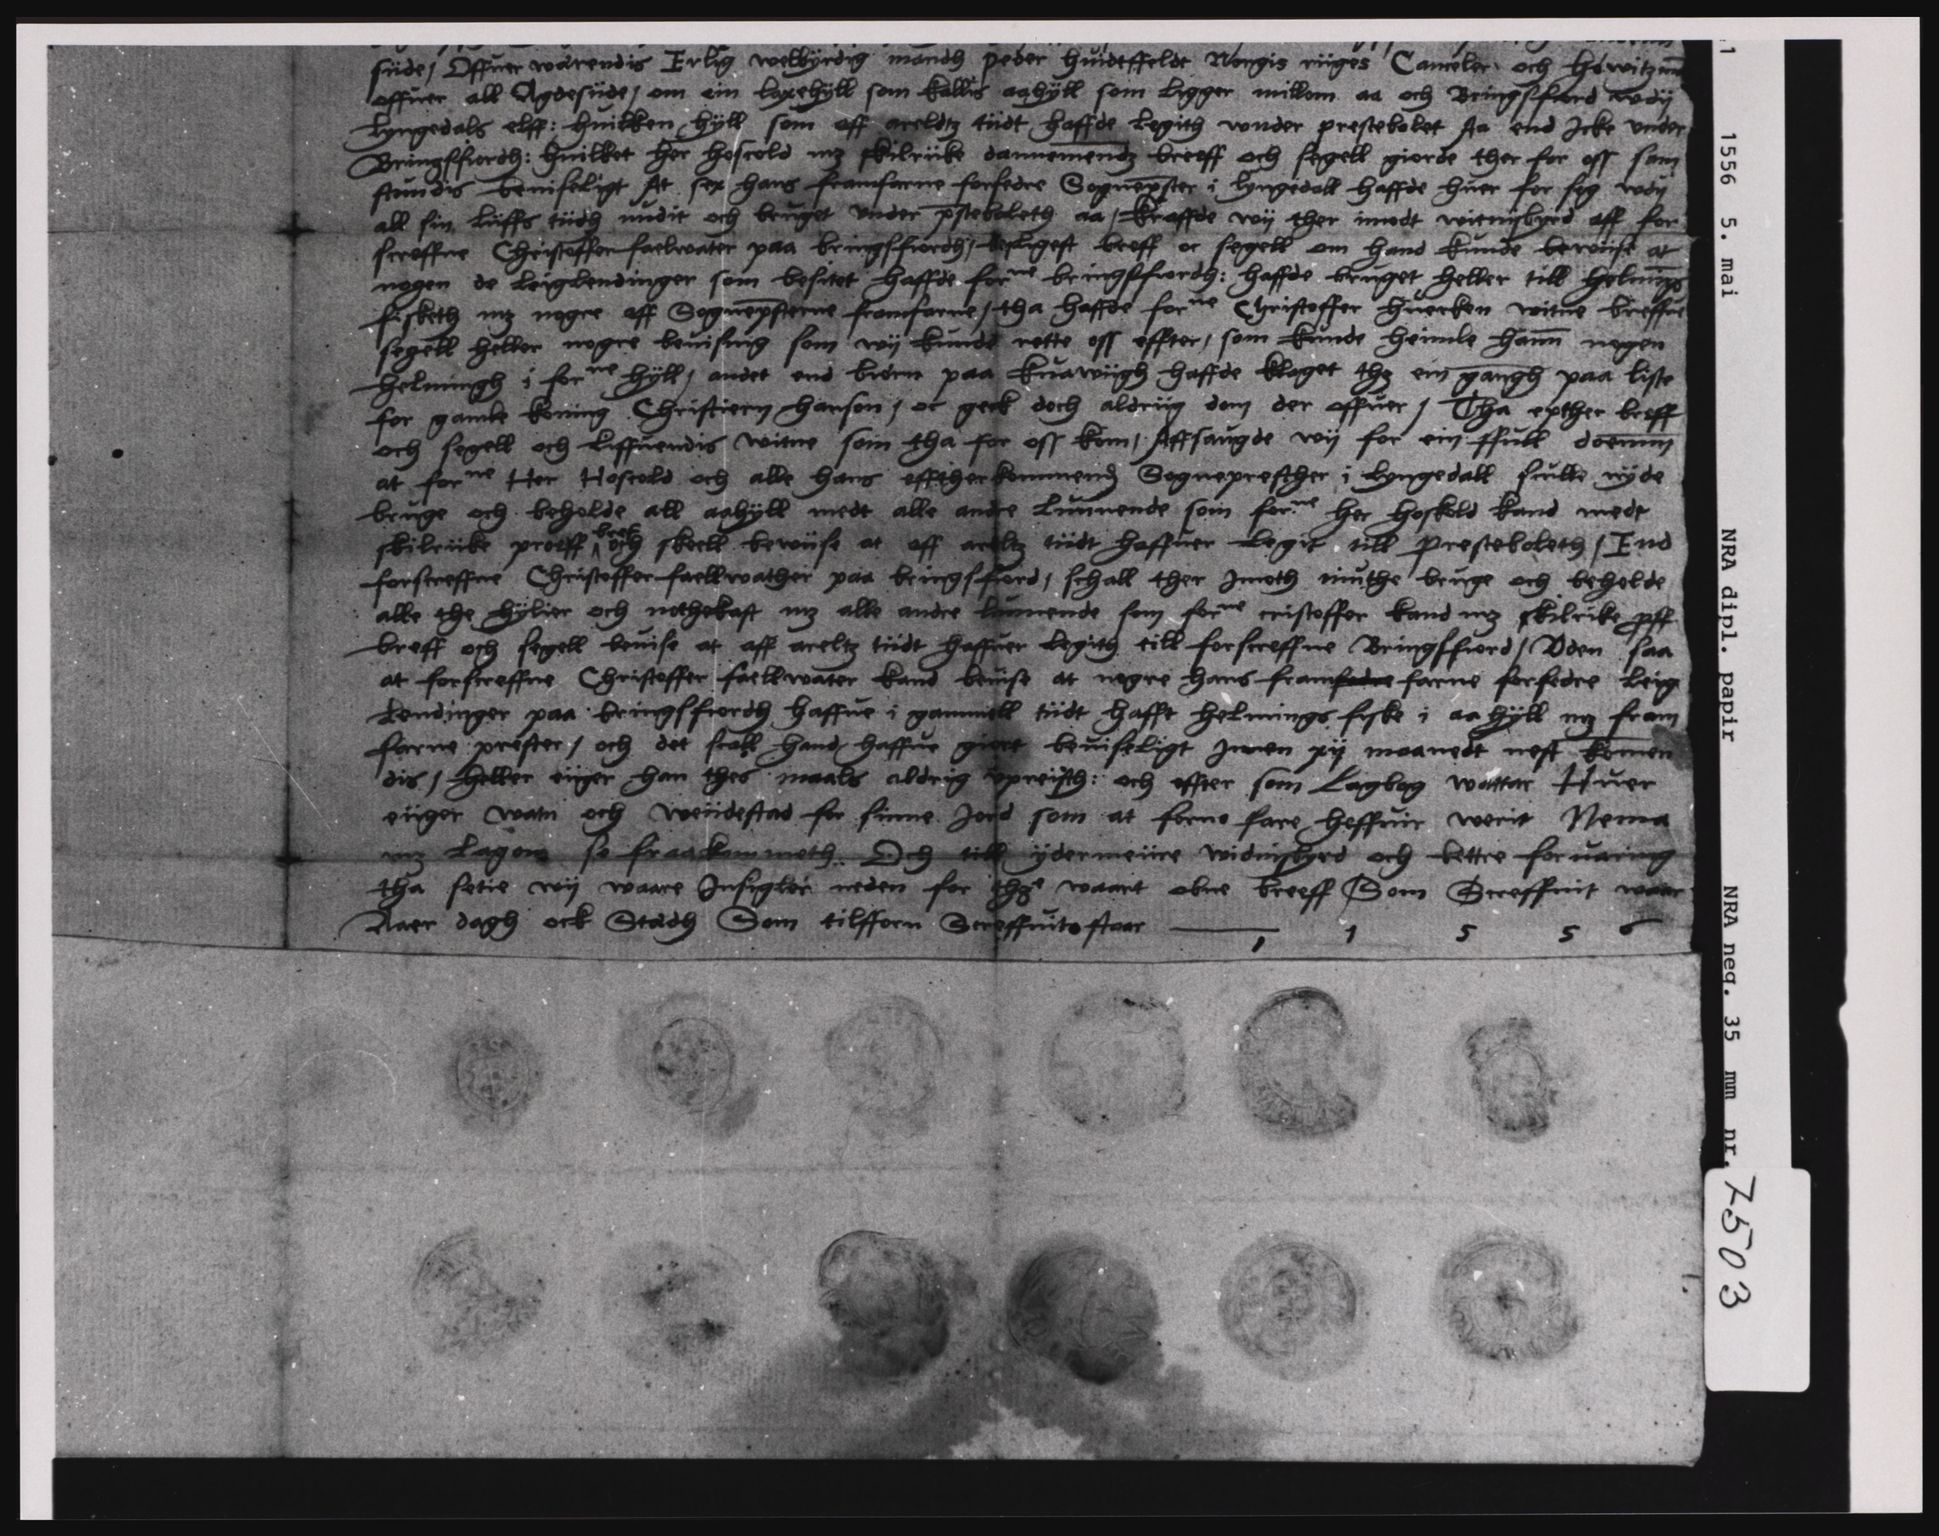 siide / Offuer wärendis Erlig welbÿrdig mandh peder huideffeldt Norgis riiges Canceler och höwitzman
offuer all Agdesiide / om ein laxehÿll som kallis aahÿll som ligger millom aa och Bringsfiord wdÿ
Lÿngedals elff: huilken hÿll som aff areldtz tiidt haffde legith wnder prestebolet Aa end icke vnder
Bringsfiordh: huilket her hoscold mz skilriike dannemendz breeff och segell giorde ther for oss sam
stundis beuiseligt At sex hans framfarne forfedre Sognepster i lÿngedall haffde huer for seg wdÿ
all sin liiffs tiidh nudit och bruget vnder psteboleth aa / kraffde wÿ ther imodt witnisbyrd aff for
screffne Christoffer faelwater paa bringsfiordh / desligest breff oc segell om hand kunde bewiise at
nogen de leiglendinger som besitet haffde forne bringsfiordh: haffde bruget heller till helnings
fisketh mz nogre aff Sognepsterne framfarne / tha haffde forne Christoffer huerken witne breffue
segell heller nogre beuising som wÿ kunde rette oss effter / som kunde heimle hann nogen
helningh i forne hÿll / andet end biden paa kuawiigh haffde klaget thz ein gangh paa liste
for gamle koning Christiern hanson / oc geck doch aldriig dom der offuer / Tha epther breff
och segell och liffuendis witne som tha for oss kom / Affsaugde wÿ for ein ffull doemm
at forne Her Hoscold och alle hans effterkommend Sogneprester i Lyngedall sculle nÿde
bruge och beholde all aahÿll medt alle andre lunnende som forne her hoskold kand medt
skilriike proff breff och skeell bewiise at aff areltz tiidt haffuer legit till Presteboleth / End
forscreffne Christoffer faellwather paa bringsfiord / schall ther Imoth niuthe bruge och beholde
alle the hÿlier och nothekast mz alle andre lunnende som forne cristoffer kand mz skilrike pff
breff och segell beuise at aff areltz tiidt haffuer legith till forscreffne Bringsfiord / Vden saa
at forscreffne Christoffer faellwater kand beuise at nogre hans framfedre farne forfedre leig
lendinger paa bringsfiordh haffue i gammell tiidt hafft helnings fiske i aa hÿll mz fram
farne prester / och det scall hand haffue giort beuiseligt Innen xij maanedt nest komen
dis / heller eiiger han thes maals aldrig vpreisth: och effter som lagbog wottar Huer
eiiger watn och weiidestad for sinne Jord som at forno fare heffuir werit Nema
mz lagom se fraakommeth. Och till ÿdermeiire widnisbyrd och bettre foruaring
tha setie wÿ waare Insigler neden for thze waart obne breeff Som Screffuit waar
Aaer dagh ock Stadh Som tilfforn Screffuit staar 1 5 5 6
1 1556 5. mai NRA dipl. papir NRA neg. 35 mm nr.
7503